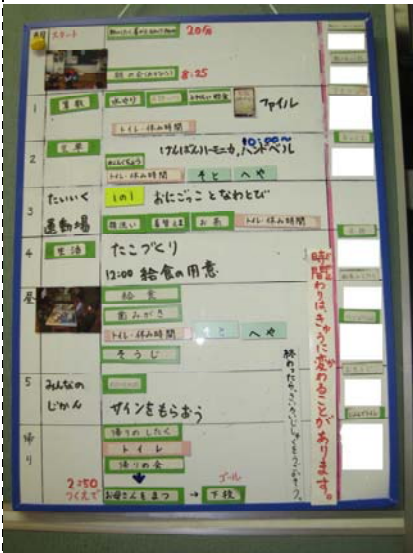 スタート
20分
朝の会
8:25
1
算数
水やり
ファイル
トイレ・休み時間
2
音楽
10:50~
けんばんハーモニカ,ハンドベル
トイレ・休み時間
そと
へや
3
たいいく
運動場
1の1
おにごっことなわとび
着替え
お茶
トイレ・休み時間
4
生活
たこづくり
12:00 給食の用意
昼
給食
歯みがき
トイレ・休み時間
そと
へや
そうじ
5
みんなの
じかん
サインをもらおう
帰り
帰りのしたく
トイレ
帰りの会
2:50
つくえで
お母さんをまつ
→
ゴール
下校
時間わりは、きゅうに変わることがあります。